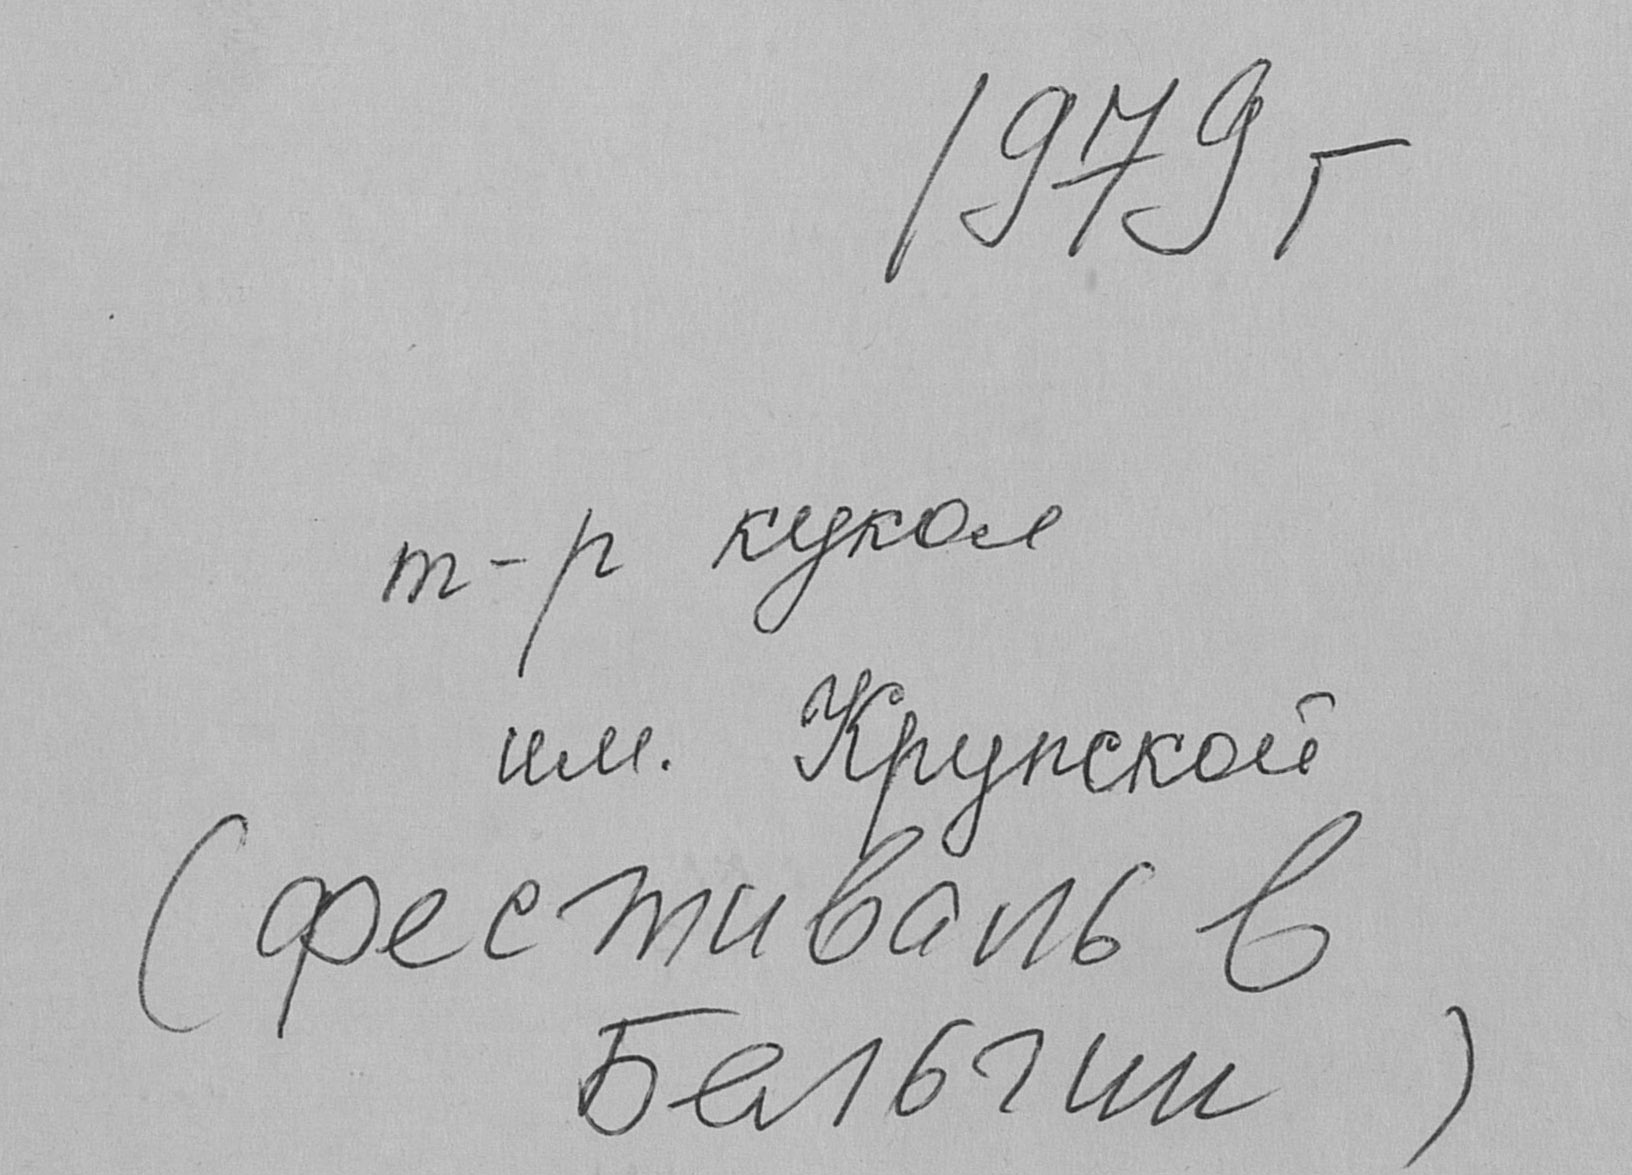 1979 г
т-р кукол
им. Крупской
(фестиваль в
Бельгии)